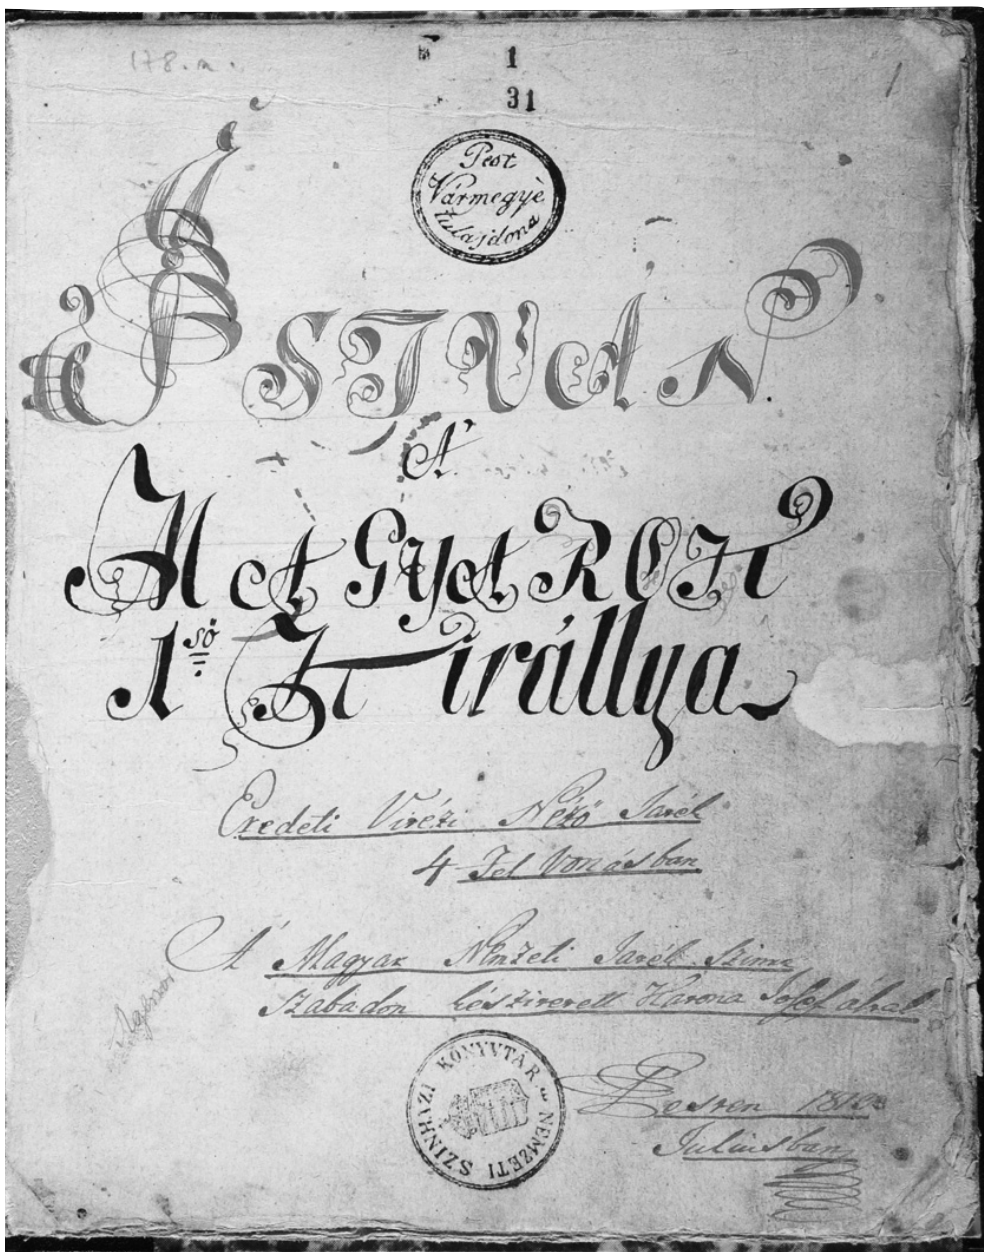 178. a.
1
1
31
Pest
Vármegyè
tulajdona
ISTVÁN.
A'
MAGYAROK
1ső Királlya
Eredeti Vitézi Néző Játék
4 Fel Vonásban
A' Magyar Nemzeti Játék Szinre
Szabadon készitetett Katona Josef által
NEMZETI SZINHÁZI KÖNYVTÁR
Pesten
Juliusban